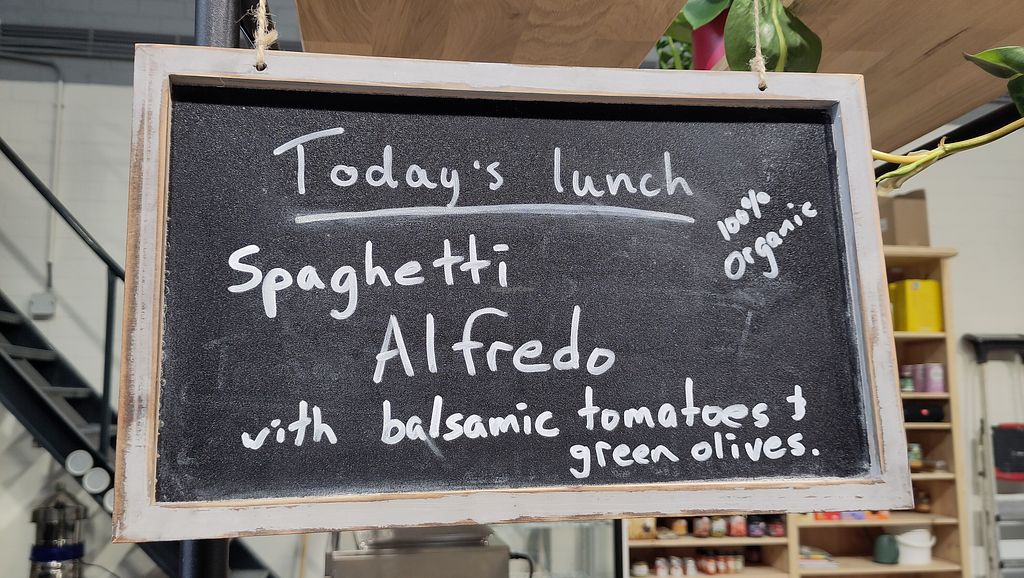 Today's lunch
100%
organic
Spaghetti
Alfredo
with balsamic tomatoes &
green olives.